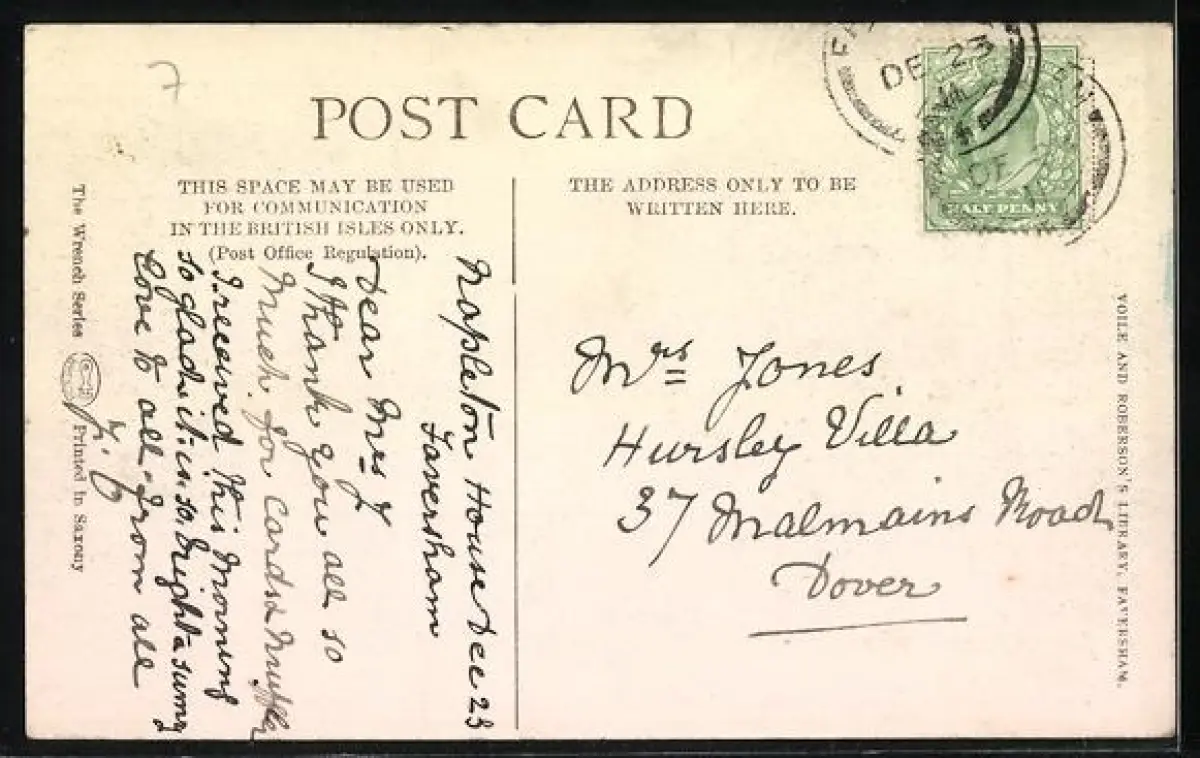 7
POST CARD
THIS SPACE MAY BE USED
FOR COMMUNICATION
IN THE BRITISH ISLES ONLY.
(Post Office Regulation).
THE ADDRESS ONLY TO BE
WRITTEN HERE.
DE 23
HALF PENNY
Napleton House Dec 23
Faversham
Dear Mrs J
I thank you all so
much for cards & muffler
I received this morning
so glad it is so bright & sunny
Love to all from all
Mrs Jones
Hursley Villa
37 Malmains Road
Dover
The Wrench Series
Printed in Saxony
VOILE AND ROBERSON'S LIBRARY, FAVERSHAM.